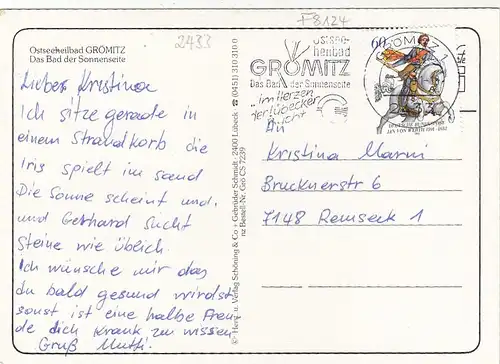 F8124
2433
Ostseeheilbad GRÖMITZ
Das Bad der Sonnenseite
Liebes Kristina
Ich sitze gerade in
einem Strandkorb die
Iris spielt im sand
Die Sonne scheint und.
und Gerhard sucht
Steine wie üblich.
Ich wünsche mir das
du bald gesund wirdst
sonst ist eine halbe Freu
de dich Krank zu wissen
Gruß Mutti.
© Hers. u. Verlag Schöning & Co + Gebrüder Schmidt, 2400 Lübeck ☎ (0451) 310 310 0
nz Bestell-Nr. Grö CS 7239
Ostsee-
heilbad
GRÖMITZ
Das Bad der Sonnenseite
„im Herzen
der Lübecker
Bucht"
60
GRÖMITZ 1
DEUTSCHE BUNDESPOST
JAN VON WERTH
An
Kristina Marni
Brucknerstr 6
7148 Remseck 1